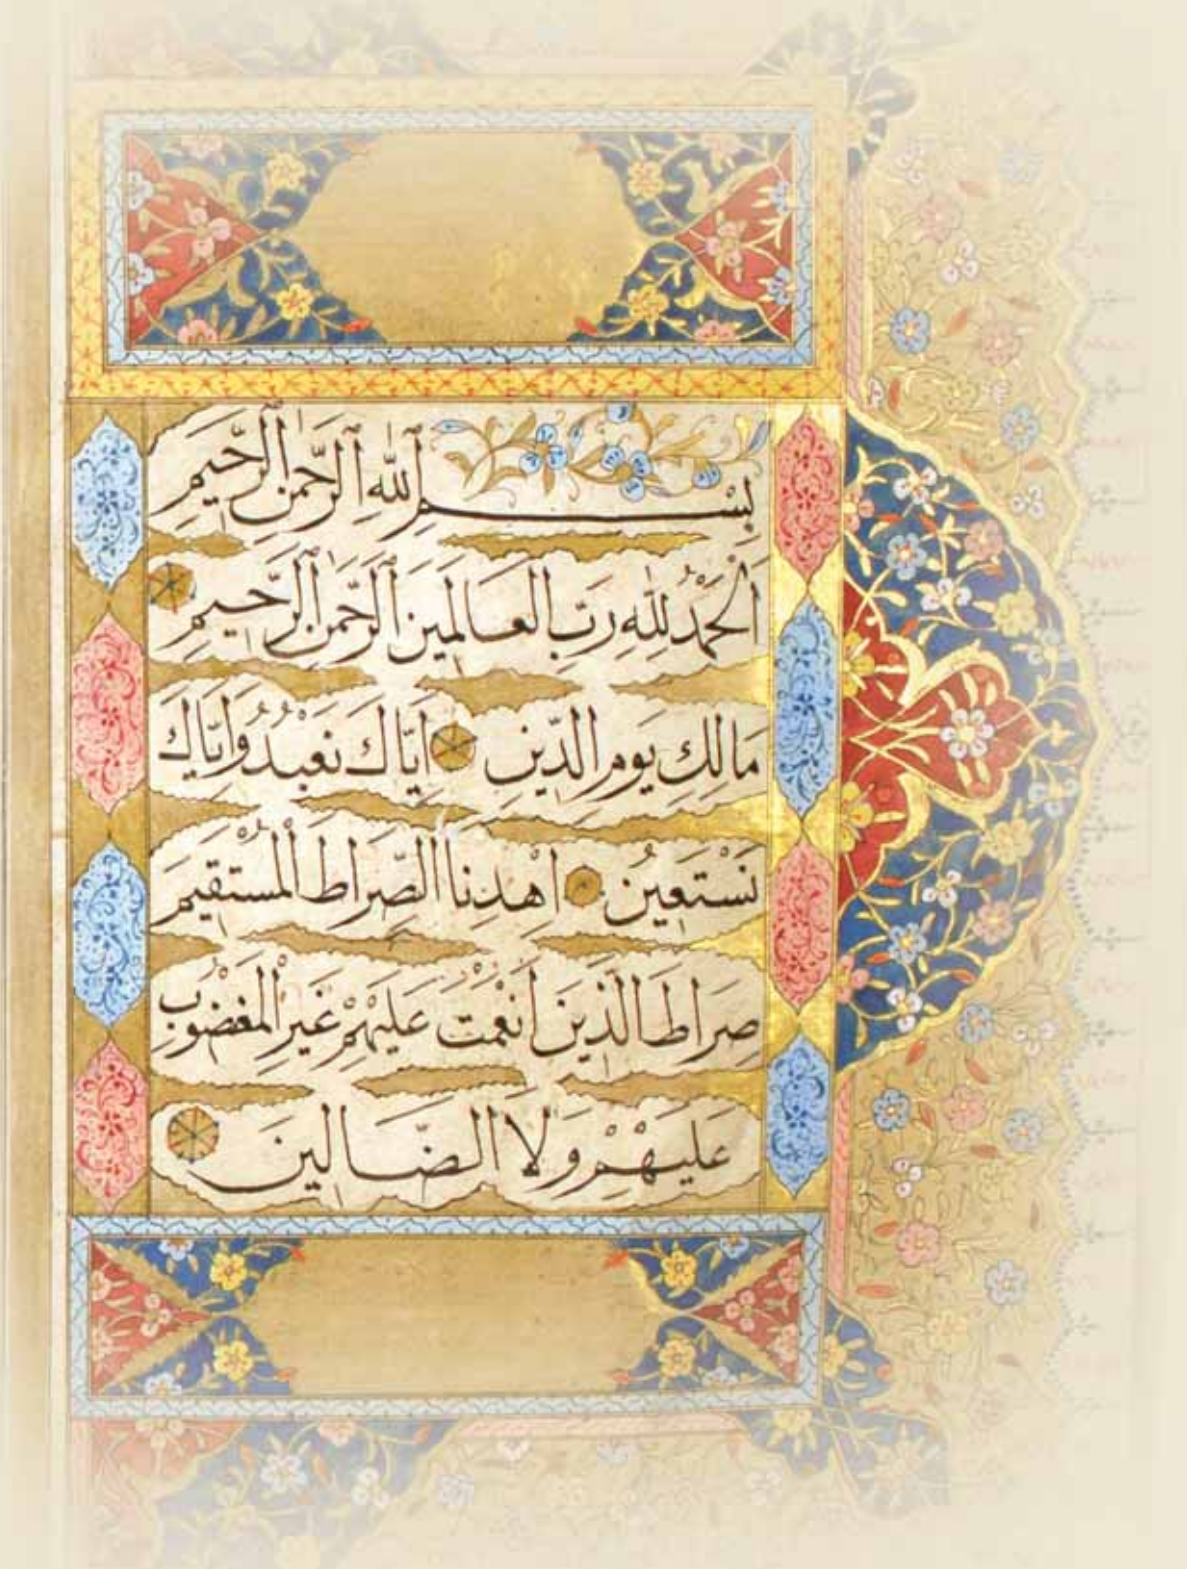 بِسْمِ ٱللّٰهِ ٱلرَّحْمٰنِ ٱلرَّحِيمِ
اَلْحَمْدُ لِلّٰهِ رَبِّ الْعَالَمِينَ ٱلرَّحْمٰنِ ٱلرَّحِيمِ
مَالِكِ يَوْمِ الدِّينِ اِيَّاكَ نَعْبُدُ وَاِيَّاكَ
نَسْتَعِينُ اِهْدِنَا الصِّرَاطَ الْمُسْتَقِيمَ
صِرَاطَ الَّذِينَ اَنْعَمْتَ عَلَيْهِمْ غَيْرِ الْمَغْضُوبِ
عَلَيْهِمْ وَلَا الضَّالِّينَ